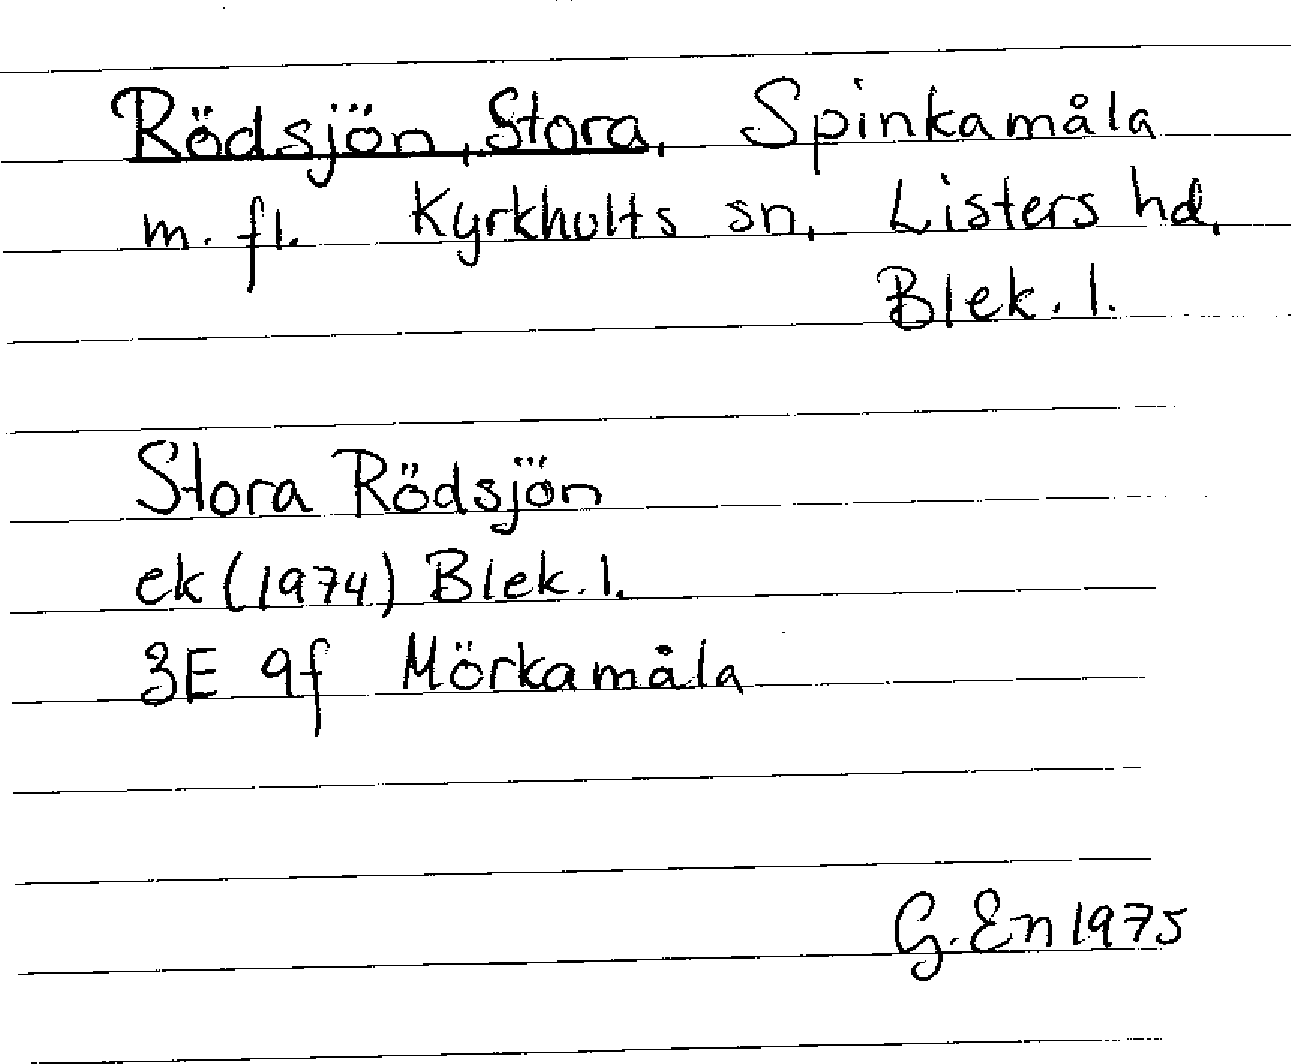 Rödsjön, Stora, Spinkamåla
m. fl. Kyrkhults sn, Listers hd,
Blek. l.
Stora Rödsjön
ek (1974) Blek. l.
3E 9f Mörkamåla
G. En 1975